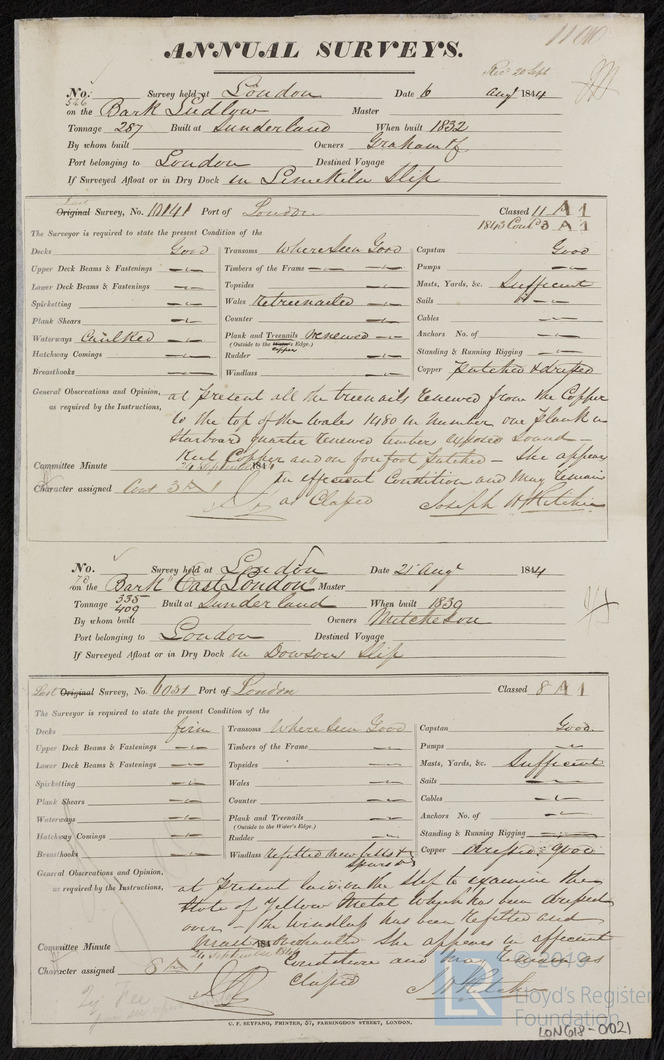 1100
ANNUAL SURVEYS.
Recd 20 Sept
No. 546 Survey held at London Date 6 Augt 1844
on the Bark Ludlow Master
Tonnage 287 Built at Sunderland When built 1832
By whom built Owners Graham &
Port belonging to London Destined Voyage
If Surveyed Afloat or in Dry Dock in Limekiln Slip
Last Original Survey, No. 10141 Port of London Classed 11 A 1
1843 Contd 3 A 1
The Surveyor is required to state the present Condition of the
Decks Good Transoms Where Seen Good Capstan Good
Upper Deck Beams & Fastenings Timbers of the Frame Pumps
Lower Deck Beams & Fastenings Topsides Masts, Yards, &c. Sufficient
Spirketting Wales Retreenailed Sails
Plank Shears Counter Cables
Waterways Caulked Plank and Treenails renewed Anchors No. of
(Outside to the Water's Edge.) Copper
Hatchway Comings Rudder Standing & Running Rigging
Breasthooks Windlass Copper Patched & dressed
General Observations and Opinion,
as required by the Instructions,
at Present all the treenails renewed from the Copper
to the top of the wales 1480 in Number one plank in
Starboard quarter renewed timbers exposed Sound -
Keel Copper and on forefoot Patched - She appears
Committee Minute 24 September 1844
in efficient Condition and May remain
Character assigned Cont 3 A 1
as Classed Joseph H Ritchie
No. 78 Survey held at London Date 21 Augt 1844
on the Bark "East London" Master
Tonnage 335 409 Built at Sunderland When built 1839
By whom built Owners Mitcheson
Port belonging to London Destined Voyage
If Surveyed Afloat or in Dry Dock in Dowsons Slip
Last Original Survey, No. 6031 Port of London Classed 8 A 1
The Surveyor is required to state the present Condition of the
Decks firm Transoms Where Seen Good Capstan Good
Upper Deck Beams & Fastenings Timbers of the Frame Pumps
Lower Deck Beams & Fastenings Topsides Masts, Yards, &c. Sufficient
Spirketting Wales Sails
Plank Shears Counter Cables
Waterways Plank and Treenails Anchors No. of
(Outside to the Water's Edge.)
Hatchway Comings Rudder Standing & Running Rigging
Breasthooks Windlass Refitted New bitts & Copper dressed & good
General Observations and Opinion,
as required by the Instructions,
at Present laid on the Slip to examine the
State of Yellow Metal Which has been dressed
over - the Windlass has been Refitted and
Committee Minute 24 September 1844
She appears in efficient
Condition and may remain as
Character assigned 8 A 1
Classed J H Ritchie
© 2019
LR Lloyd's Register
Foundation
C. F. SEYFANG, PRINTER, 57, FARRINGDON STREET, LONDON.
LON618-0021